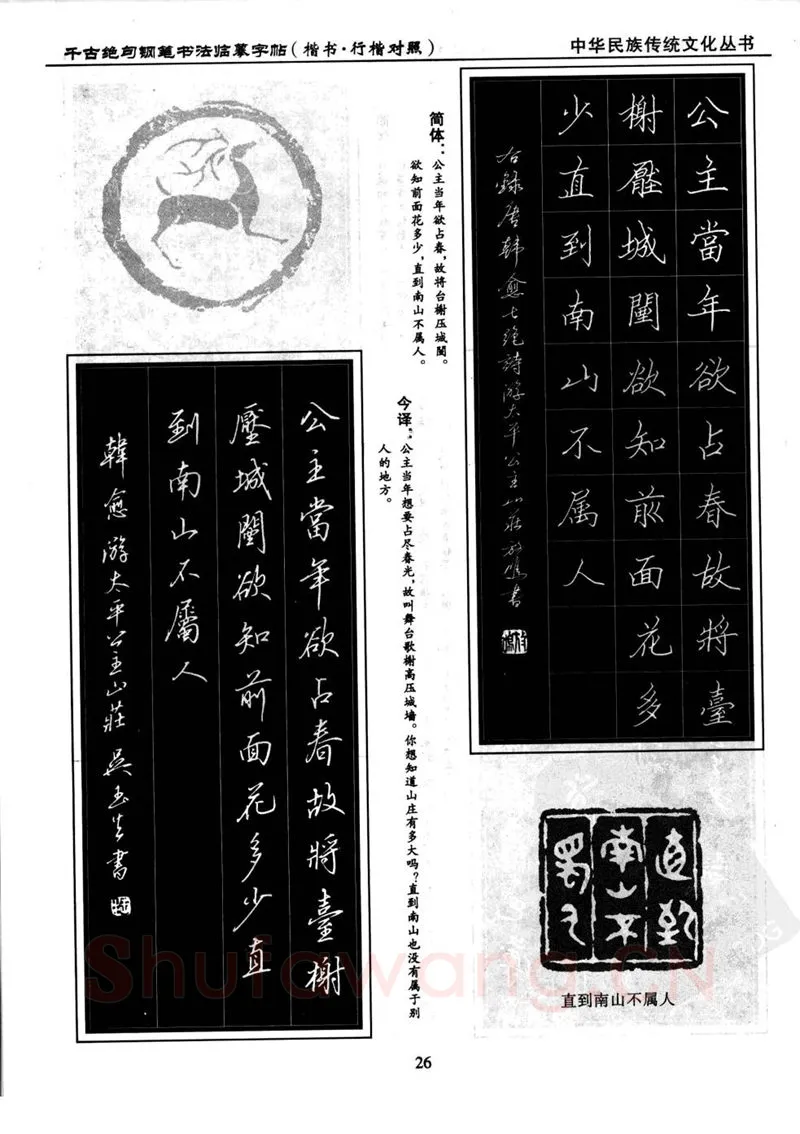 千古绝句钢笔书法临摹字帖(楷书·行楷对照)
中华民族传统文化丛书
公主當年欲占春故將臺
榭壓城闉欲知前面花多
少直到南山不属人
右録唐韓愈七绝詩游太平公主山莊
简体：公主当年欲占春，故将台榭压城闉。
欲知前面花多少，直到南山不属人。
今译：公主当年想要占尽春光，故叫舞台歌榭高压城墙。你想知道山庄有多大吗？直到南山也没有属于别
人的地方。
公主當年欲占春故將臺榭
壓城闉欲知前面花多少直
到南山不屬人
韓愈游太平公主山莊 吴玉生書
直到
南山不
屬人
直到南山不属人
Shufawang.CN
26